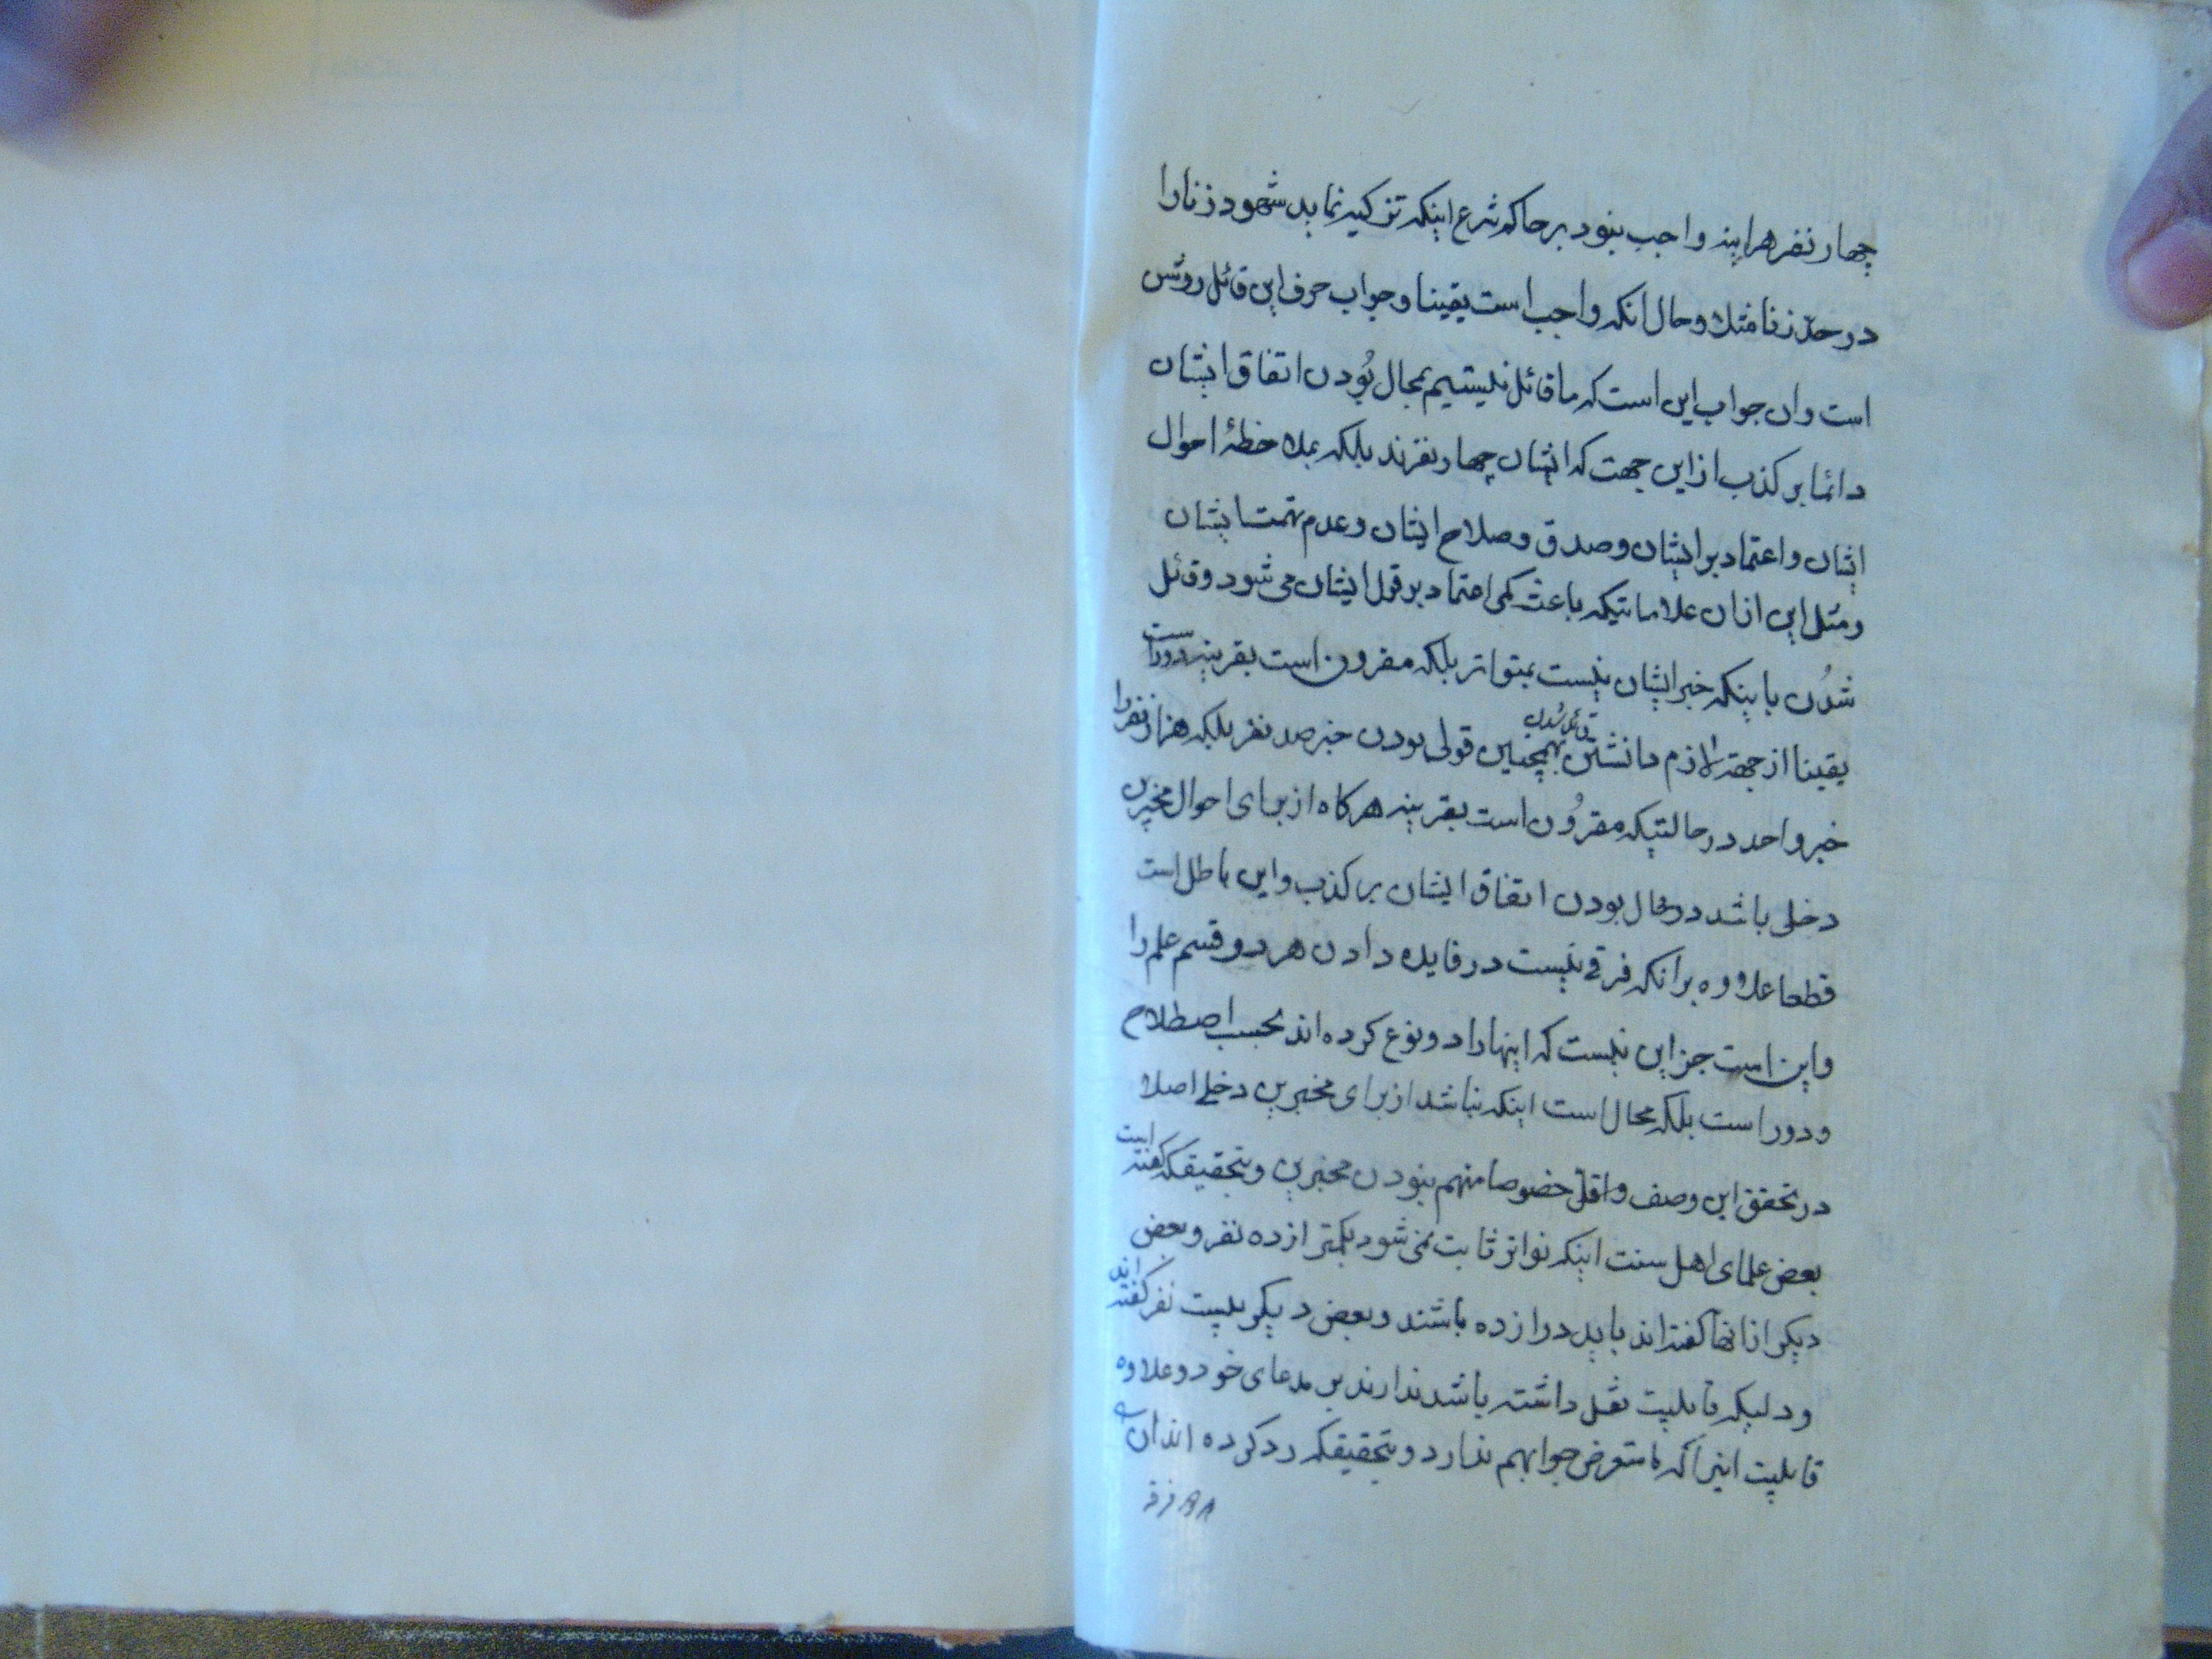 چهار نفر هراینه واجب نبود بر حاکم شرع اینکه تزکیه نماید شهود زنا را
در حدّ زنا مثلا و حال انکه واجب است یقینا و جواب حرف این قائل روشن
است و ان جواب این است که ما قائل نیستیم بمحال بُودن اتفاق ایشان
دائما بر کذب از این جهت که ایشان چهار نفرند بلکه بملاحظهٔ احوال
ایشان و اعتماد بر ایشان و صدق و صلاح ایشان و عدم تهمت ایشان
و مثل این از ان علاماتیکه باعث کمی اعتماد بر قول ایشان می شود و قائل
شدُن باینکه خبر ایشان نیست بمتواتر بلکه مقرون است بقرینه دور است
یقینا از جهته لازم دانستن قائل شدن بهمچنین قولی بودن خبر صد نفر بلکه هزار نفر را
خبر واحد در حالتیکه مقرُون است بقرینه هرکاه از برای احوال مخبرین
دخلی باشد در محال بودن اتفاق ایشان بر کذب و این باطل است
قطعا علاوه بر انکه فرقی نیست در فایده دادن هر دو قسم علم را
و این است جز این نیست که اینها را دو نوع کرده اند بحسب اصطلاح
و دور است بلکه محال است اینکه نباشد از برای مخبرین دخلی اصلا
در تحقق این وصف و اقلّ خصوصا متهم نبودن مخبرین و بتحقیقکه گفته است
بعض علمای اهل سنت اینکه تواتر ثابت نمی شود بکمتر از ده نفر و بعض
دیکر از انها گفته اند باید دوازده باشند و بعض دیکر بیست نفر گفته اند
و دلیکه قابلیت نقل داشته باشد ندارند بر مدعای خود و علاوه
قابلیت اینرا که متعرض جوابهم ندارد و بتحقیقکه رد کرده اند ان